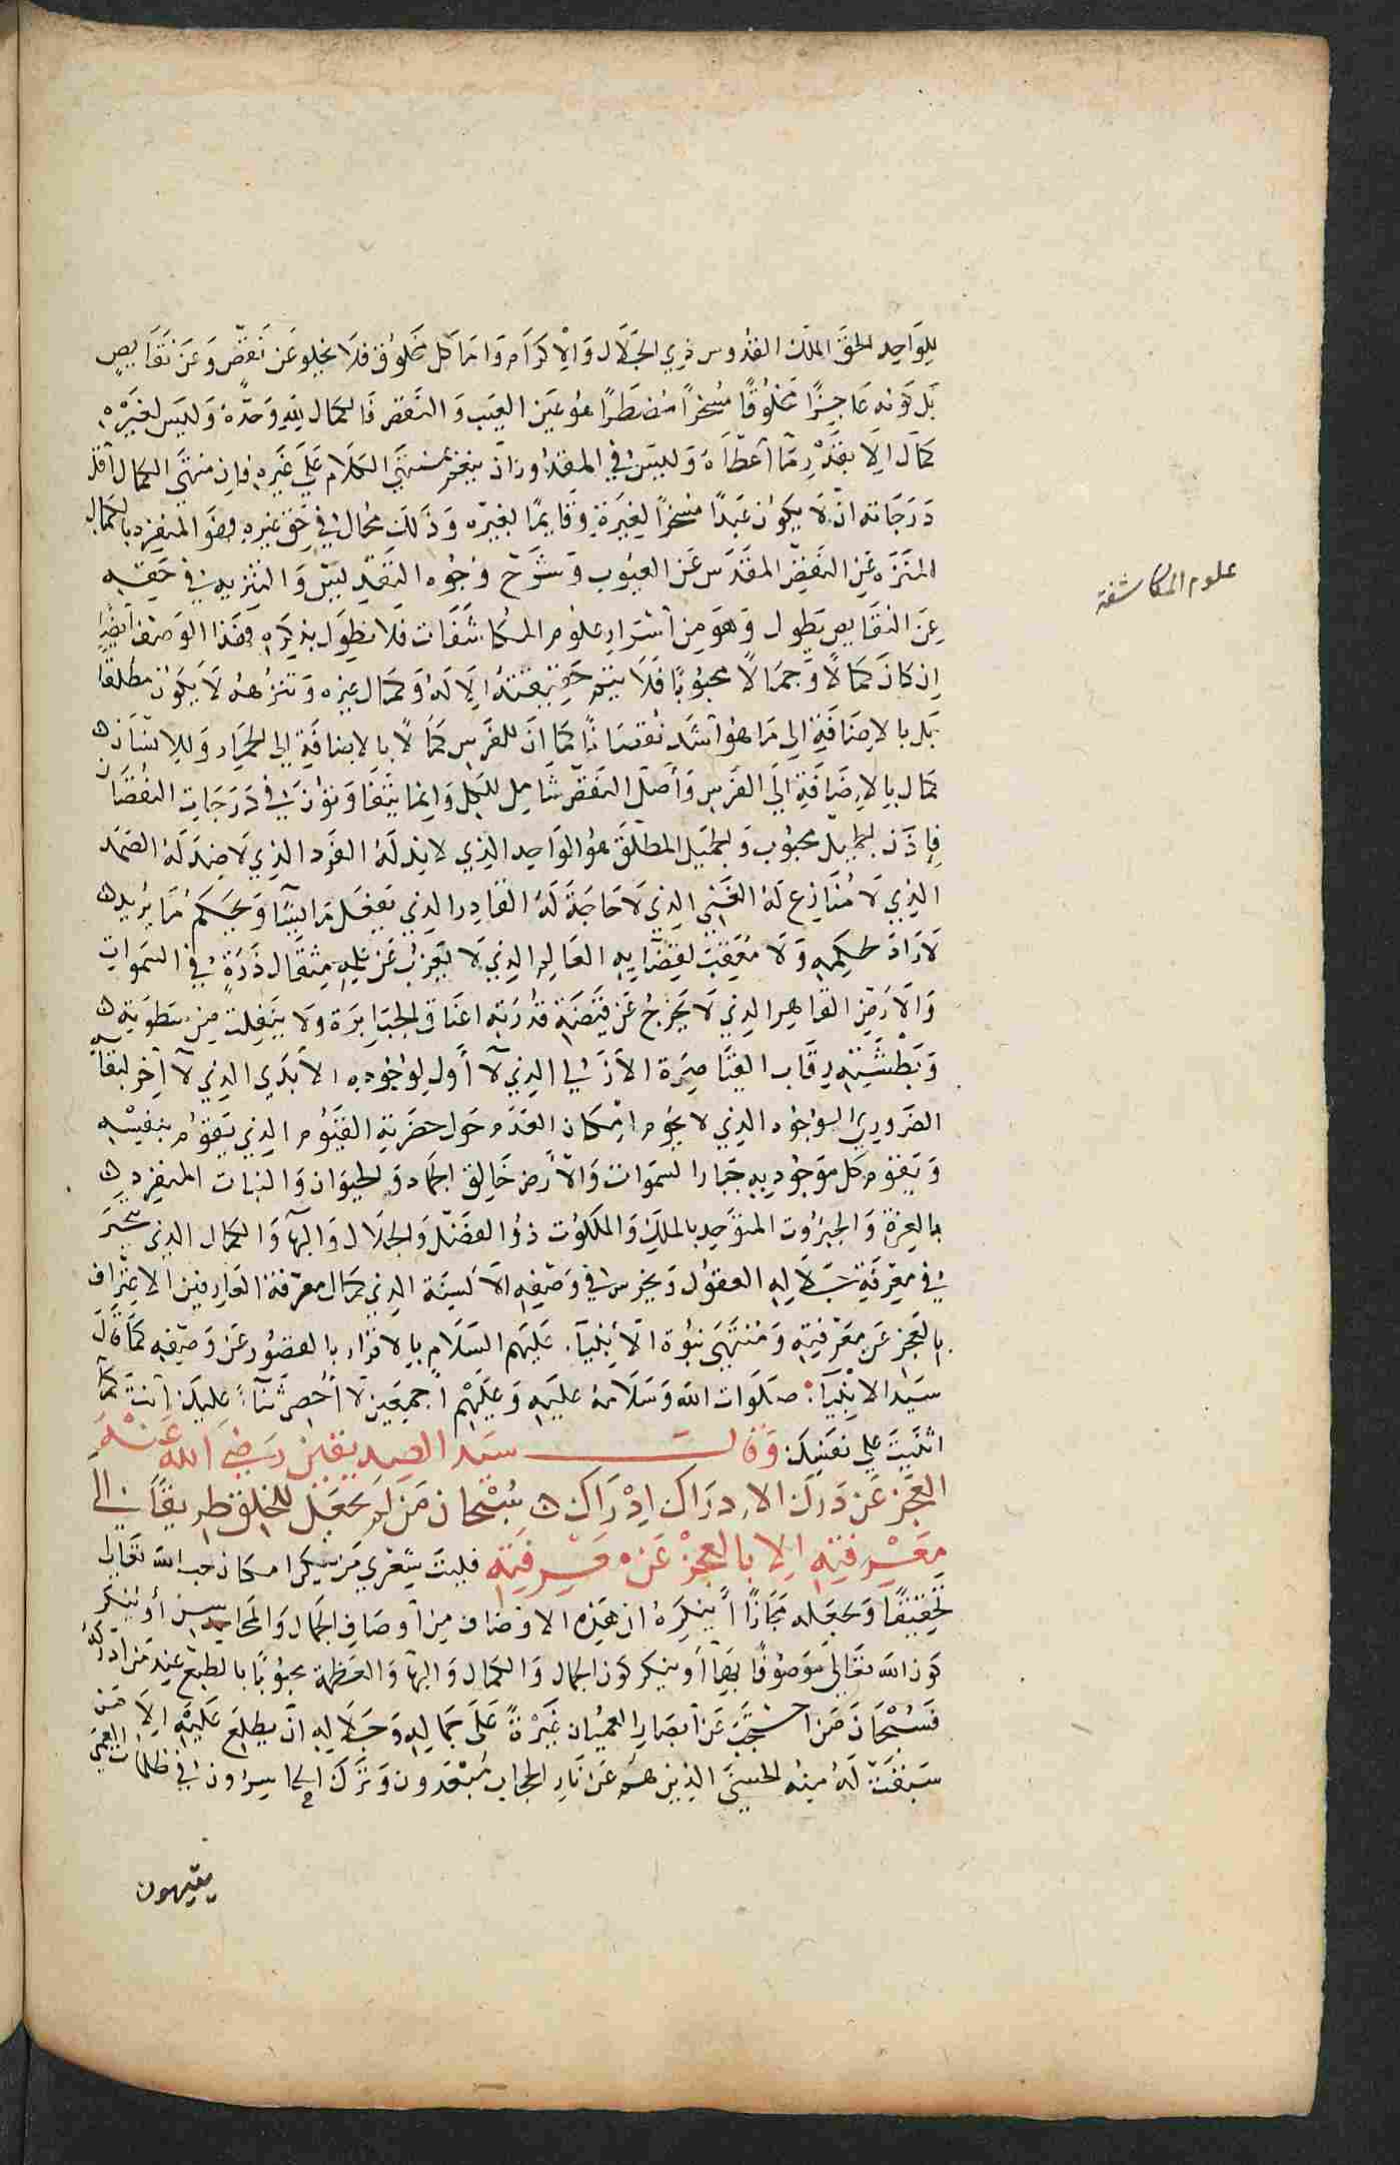 للواحد الحق الملك القدوس ذي الجلال والاكرام واما كل مخلوق فلا يخلو عن نقص وعن نقايص
بل كونه عاجزا مخلوقا مسخرا مضطرا هو عين العيب والنقص فالكمال لله وحده وليس لغيره
كمال الا بقدر ما أعطاه وليس في المقدور ان ينعم بمنتهى الكلام على غيره فان منتهى الكمال اقل
درجاته ان لا يكون عبدا مسخرا لغيره وقايما بغيره وذلك محال في حق غيره فهو المنفرد بالكمال
المنزه عن النقص المقدس عن العيوب وشرح وجوه التقديس والتنزيه في حقه
علوم المكاشفة
عن النقايص يطول وهو من أسرار علوم المكاشفات فلا نطول بذكره فهذا الوصف أيضا
ان كان كمالا وجمالا محبوبا فلا يتم حقيقته الا له وكمال غيره وتنزهه لا يكون مطلقا
بل بالاضافة الى ما هو أشد نقصانا كما ان للفرس كمالا بالاضافة الى الحمار وللانسان
كمال بالاضافة الى الفرس وأصل النقص شامل للكل وانما يتفاوتون في درجات النقصان
فاذن الجميل محبوب والجميل المطلق هو الواحد الذي لا ند له الفرد الذي لا ضد له الصمد
الذي لا منازع له الغني الذي لا حاجة له القادر الذي يفعل ما يشا ويحكم ما يريد
لا راد لحكمه ولا معقب لقضايه العالم الذي لا يعزب عن علمه مثقال ذرة في السموات
والارض القاهر الذي لا يخرج عن قبضة قدرته اعناق الجبابرة ولا ينفلت من سطوته
وبطشته رقاب القياصرة الازلي الذي لا أول لوجوده الأبدي الذي لا آخر لبقائه
الضروري الوجود الذي لا يحوم امكان العدم حول حضرته القيوم الذي يقوم بنفسه
ويقوم كل موجود به جبار السموات والأرض خالق الجماد والحيوان والنبات المنفرد
بالعزة والجبروت المتوحد بالملك والملكوت ذو الفضل والجلال والبها والكمال الذي تتحير
في معرفة جلاله العقول ويخرس في وصفه الالسنة الذي كمال معرفة العارفين الاعتراف
بالعجز عن معرفته ومنتهى نبوة الأنبياء عليهم السلام بالاقرار بالقصور عن وصفه كما قال
سيد الانبيآء صلوات الله وسلامه عليه وعليهم أجمعين لا أحصي ثنآء عليك أنت كما
اثنيت على نفسك وقال سيد الصديقين رضي الله عنه
العجز عن درك الادراك ادراك سبحان من لم يجعل للخلق طريقا الى
معرفته الا بالعجز عن معرفته فليت شعري من ينكر امكان حب الله تعالى
تحقيقا ويجعله مجازا أينكره ان هذه الاوصاف من أوصاف الجمال والمحاسن أو ينكر
كون الله تعالى موصوفا بها أو ينكر كون الجمال والكمال والبها والعظمة محبوبا بالطبع عند من ادركه
فسبحان من احتجب عن أبصار العميان غيرة على جماله وجلاله ان يطلع عليه الا من
سبقت له منه الحسنى الذين هم عن نار الحجاب مبعدون وترك الخاسرون في ظلمات العمى
يتيهون